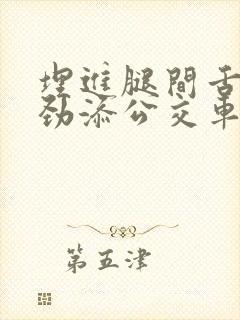 埋進腿間舌
劲添公交車
第五津